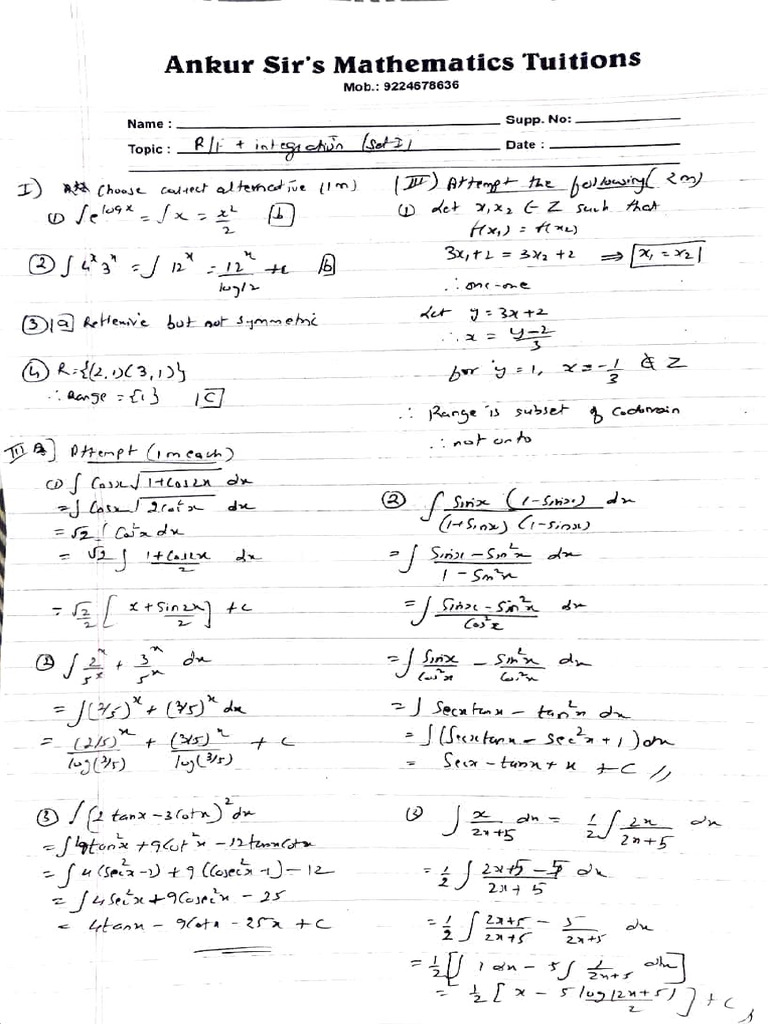 Ankur Sir's Mathematics Tuitions
Mob.: 9224678636
Name : Supp. No:
Topic : R/f + integration (Set I) Date :
I) Choose correct alternative (1m)
① ∫e^logx = ∫x = x²/2 [b]
② ∫4^x 3^x = ∫12^x = 12^x/log12 + c [b]
③ [a] Reflexive but not symmetric
④ R={(2,1)(3,1)}
∴ Range = {1} [C]
II A] Attempt (1m each)
① ∫ Cosx √(1+Cos2x) dx
= ∫ Cosx √(2Cos²x) dx
= √2 ∫ Cos²x dx
= √2 ∫ (1+Cos2x)/2 dx
= √2/2 [x + Sin2x/2] + c
② ∫ 2^x/5^x + 3^x/5^x dx
= ∫(2/5)^x + (3/5)^x dx
= (2/5)^x/log(2/5) + (3/5)^x/log(3/5) + C
③ ∫(2tanx-3Cotx)²dx
= ∫4tan²x + 9Cot²x - 12tanxCotx
= ∫4(Sec²x-1) + 9(Cosec²x-1) - 12
= ∫4Sec²x + 9Cosec²x - 25
= 4tanx - 9Cotx - 25x + C
(III) Attempt the following (2m)
① Let x₁x₂ ∈ Z such that
f(x₁) = f(x₂)
3x₁+2 = 3x₂+2 ⟹ [x₁ = x₂]
∴ one-one
Let y = 3x+2
∴ x = (y-2)/3
for y = 1, x = -1/3 ∉ Z
∴ Range is subset of Codomain
∴ not onto
② ∫ Sinx (1-Sinx)/((1+Sinx)(1-Sinx)) dx
= ∫ (Sinx - Sin²x)/(1-Sin²x) dx
= ∫ (Sinx - Sin²x)/Cos²x dx
= ∫ Sinx/Cos²x - Sin²x/Cos²x dx
= ∫ Secxtanx - tan²x dx
= ∫(Secxtanx - Sec²x + 1) dx
= Secx - tanx + x + C //
③ ∫ x/(2x+5) dx = 1/2 ∫ 2x/(2x+5) dx
= 1/2 ∫ (2x+5-5)/(2x+5) dx
= 1/2 ∫ (2x+5)/(2x+5) - 5/(2x+5) dx
= 1/2 [∫ 1 dx - 5 ∫ 1/(2x+5) dx]
= 1/2 [x - 5 log(2x+5)/2] + C //